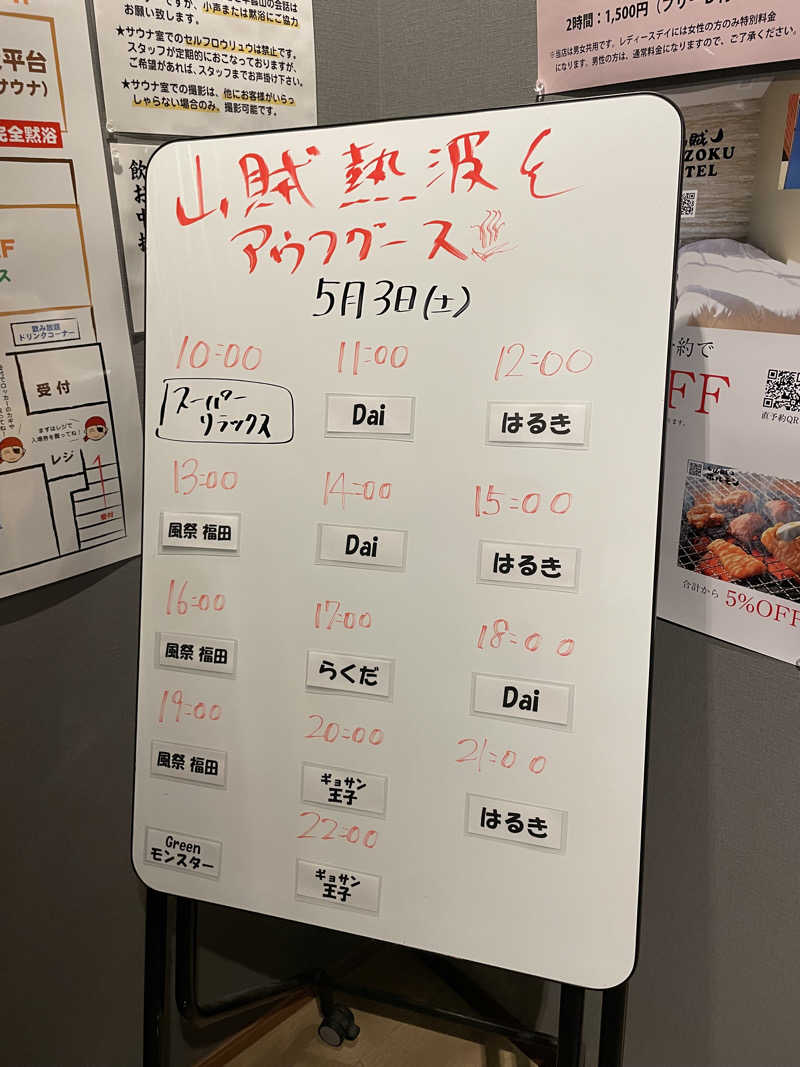 お願い致します。小声または黙浴にご協力
★サウナ室でのセルフロウリュウは禁止です。
スタッフが定期的におこなっておりますが、
ご希望があれば、スタッフまでお声掛け下さい。
★サウナ室での撮影は、他にお客様がいらっ
しゃらない場合のみ、撮影可能です。
2時間:1,500円
※当店は男女共用です。レディースデイには女性の方のみ特別料金
になります。男性の方は、通常料金になりますので、ご了承ください。
平台
サウナ)
完全黙浴
飲み放題
ドリンクコーナー
受付
まずはレジで
入場券を買ってね!
レジ
受付
山賊熱波と
アウフグース♨
5月3日(土)
10:00
11:00
12:00
スーパー
リラックス
Dai
はるき
13:00
14:00
15:00
風祭 福田
Dai
はるき
16:00
17:00
18:00
風祭 福田
らくだ
Dai
19:00
20:00
21:00
風祭 福田
ギョサン
王子
はるき
22:00
Green
モンスター
ギョサン
王子
ZOKU
TEL
約で
FF
直予約QR
合計から 5%OFF